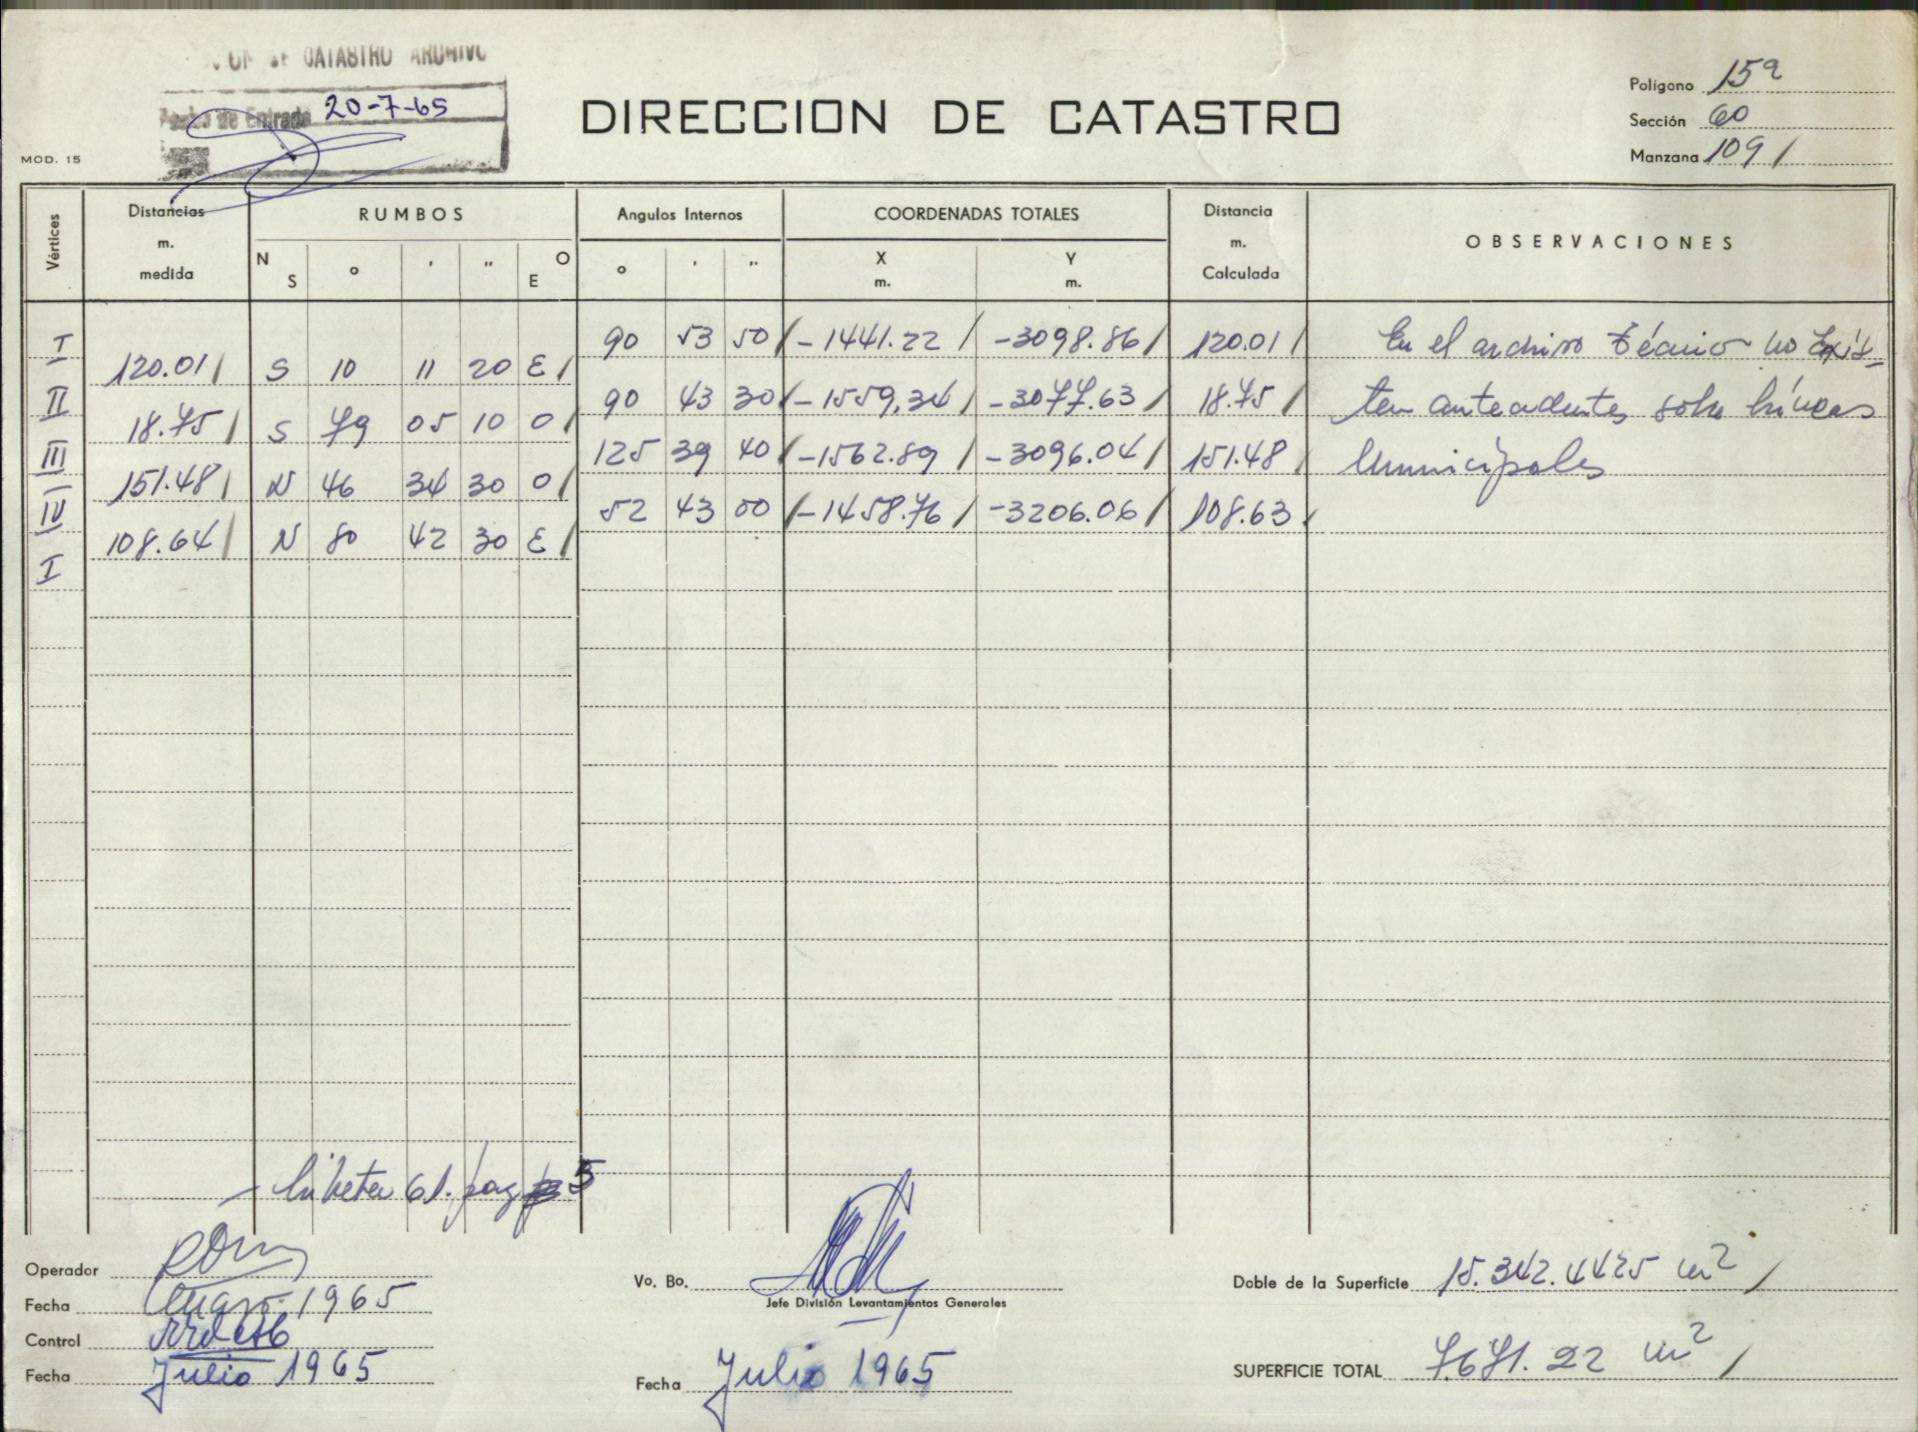 CATASTRO ARCHIVO
de Entrada 20-7-65
DIRECCION DE CATASTRO
Polígono 15ª
Sección 60
Manzana 109 /
MOD. 15
Vértices
Distancias m. medida
RUMBOS
N S ° ' " O E
Angulos Internos
° ' "
COORDENADAS TOTALES
X m. Y m.
Distancia m. Calculada
OBSERVACIONES
I 90 53 50 / -1441.22 / -3098.86 / 120.01 / En el archivo técnico no Exis-
120.01 / S 10 11 20 E /
II 90 43 30 / -1559,34 / -3077.63 / 18.75 / ten antecedentes sobre líneas
18.75 / S 79 05 10 O /
III 125 39 40 / -1562.89 / -3096.04 / 151.48 / Municipales
151.48 / N 46 34 30 O /
IV 52 43 00 / -1458.76 / -3206.06 / 108.63 /
108.64 / N 80 42 30 E /
I
- libreta 61. pag 5
Operador
Fecha 1965
Control
Fecha Julio 1965
Vo. Bo.
Jefe División Levantamientos Generales
Fecha Julio 1965
Doble de la Superficie 15.342.4425 m² /
SUPERFICIE TOTAL 7.671.22 m² /